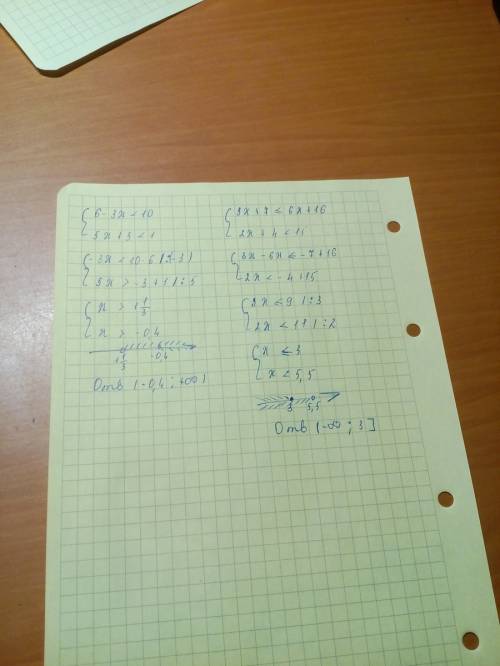 6-3x<10
5x+3<1
-3x<10-6 |:(-3)
5x>-3+1 |:5
x>-1 1/3
x>-0,4
-1 1/3 -0,4
Отв (-0,4; +∞)
9x+7≤6x+16
2x+4<15
3x-6x≤-7+16
2x<-4+15
3x≤9 |:3
2x<11 |:2
x≤3
x<5,5
3 5,5
Отв (-∞; 3]